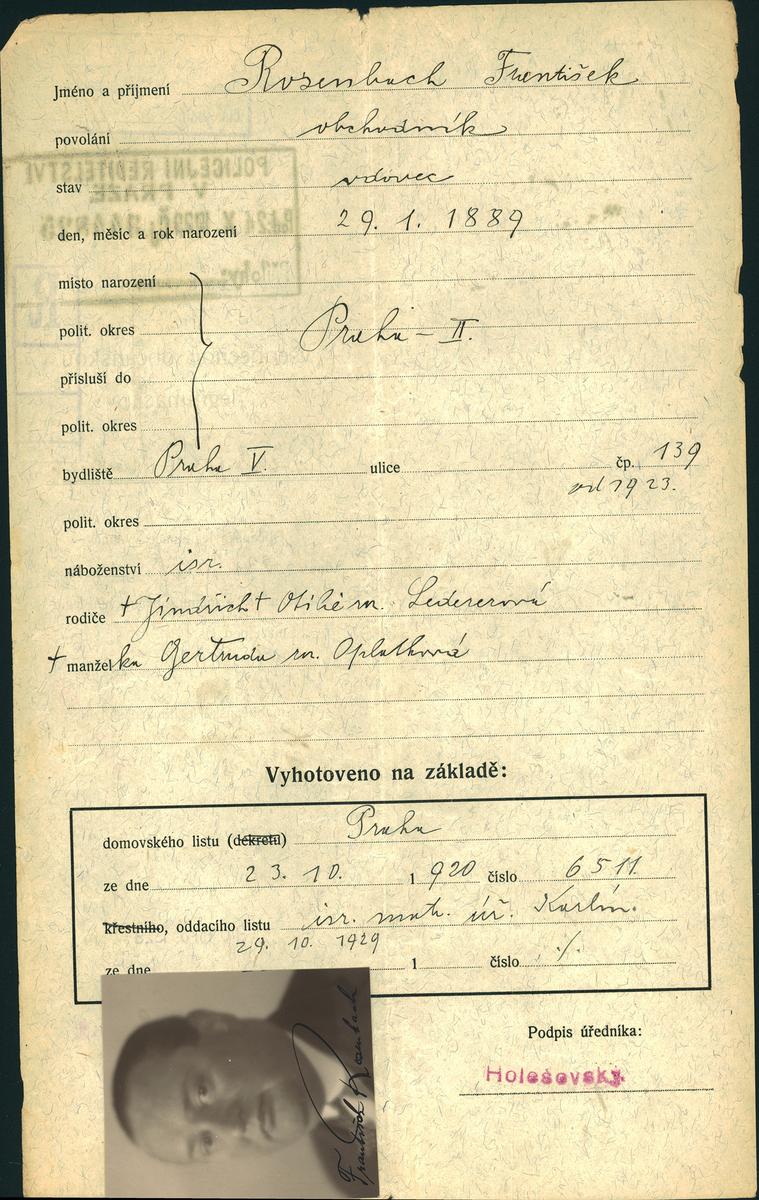 Jméno a příjmení Rosenbach František
povolání obchodník
stav vdovec
den, měsíc a rok narození 29. 1. 1889
místo narození
polit. okres Praha - II.
přísluší do
polit. okres
bydliště Praha V. ulice čp. 139
od 1923.
polit. okres
náboženství isr.
rodiče † Jindřich † Otilie roz. Ledererová
† manželka Gertruda roz. Oplatková
Vyhotoveno na základě:
domovského listu (dekretu) Praha
ze dne 23. 10. 1 920 číslo 6511
křestního, oddacího listu isr. mat. úř. Karlín.
29. 10. 1929
ze dne 1 číslo ./.
Podpis úředníka:
Holešovský
František Rosenbach